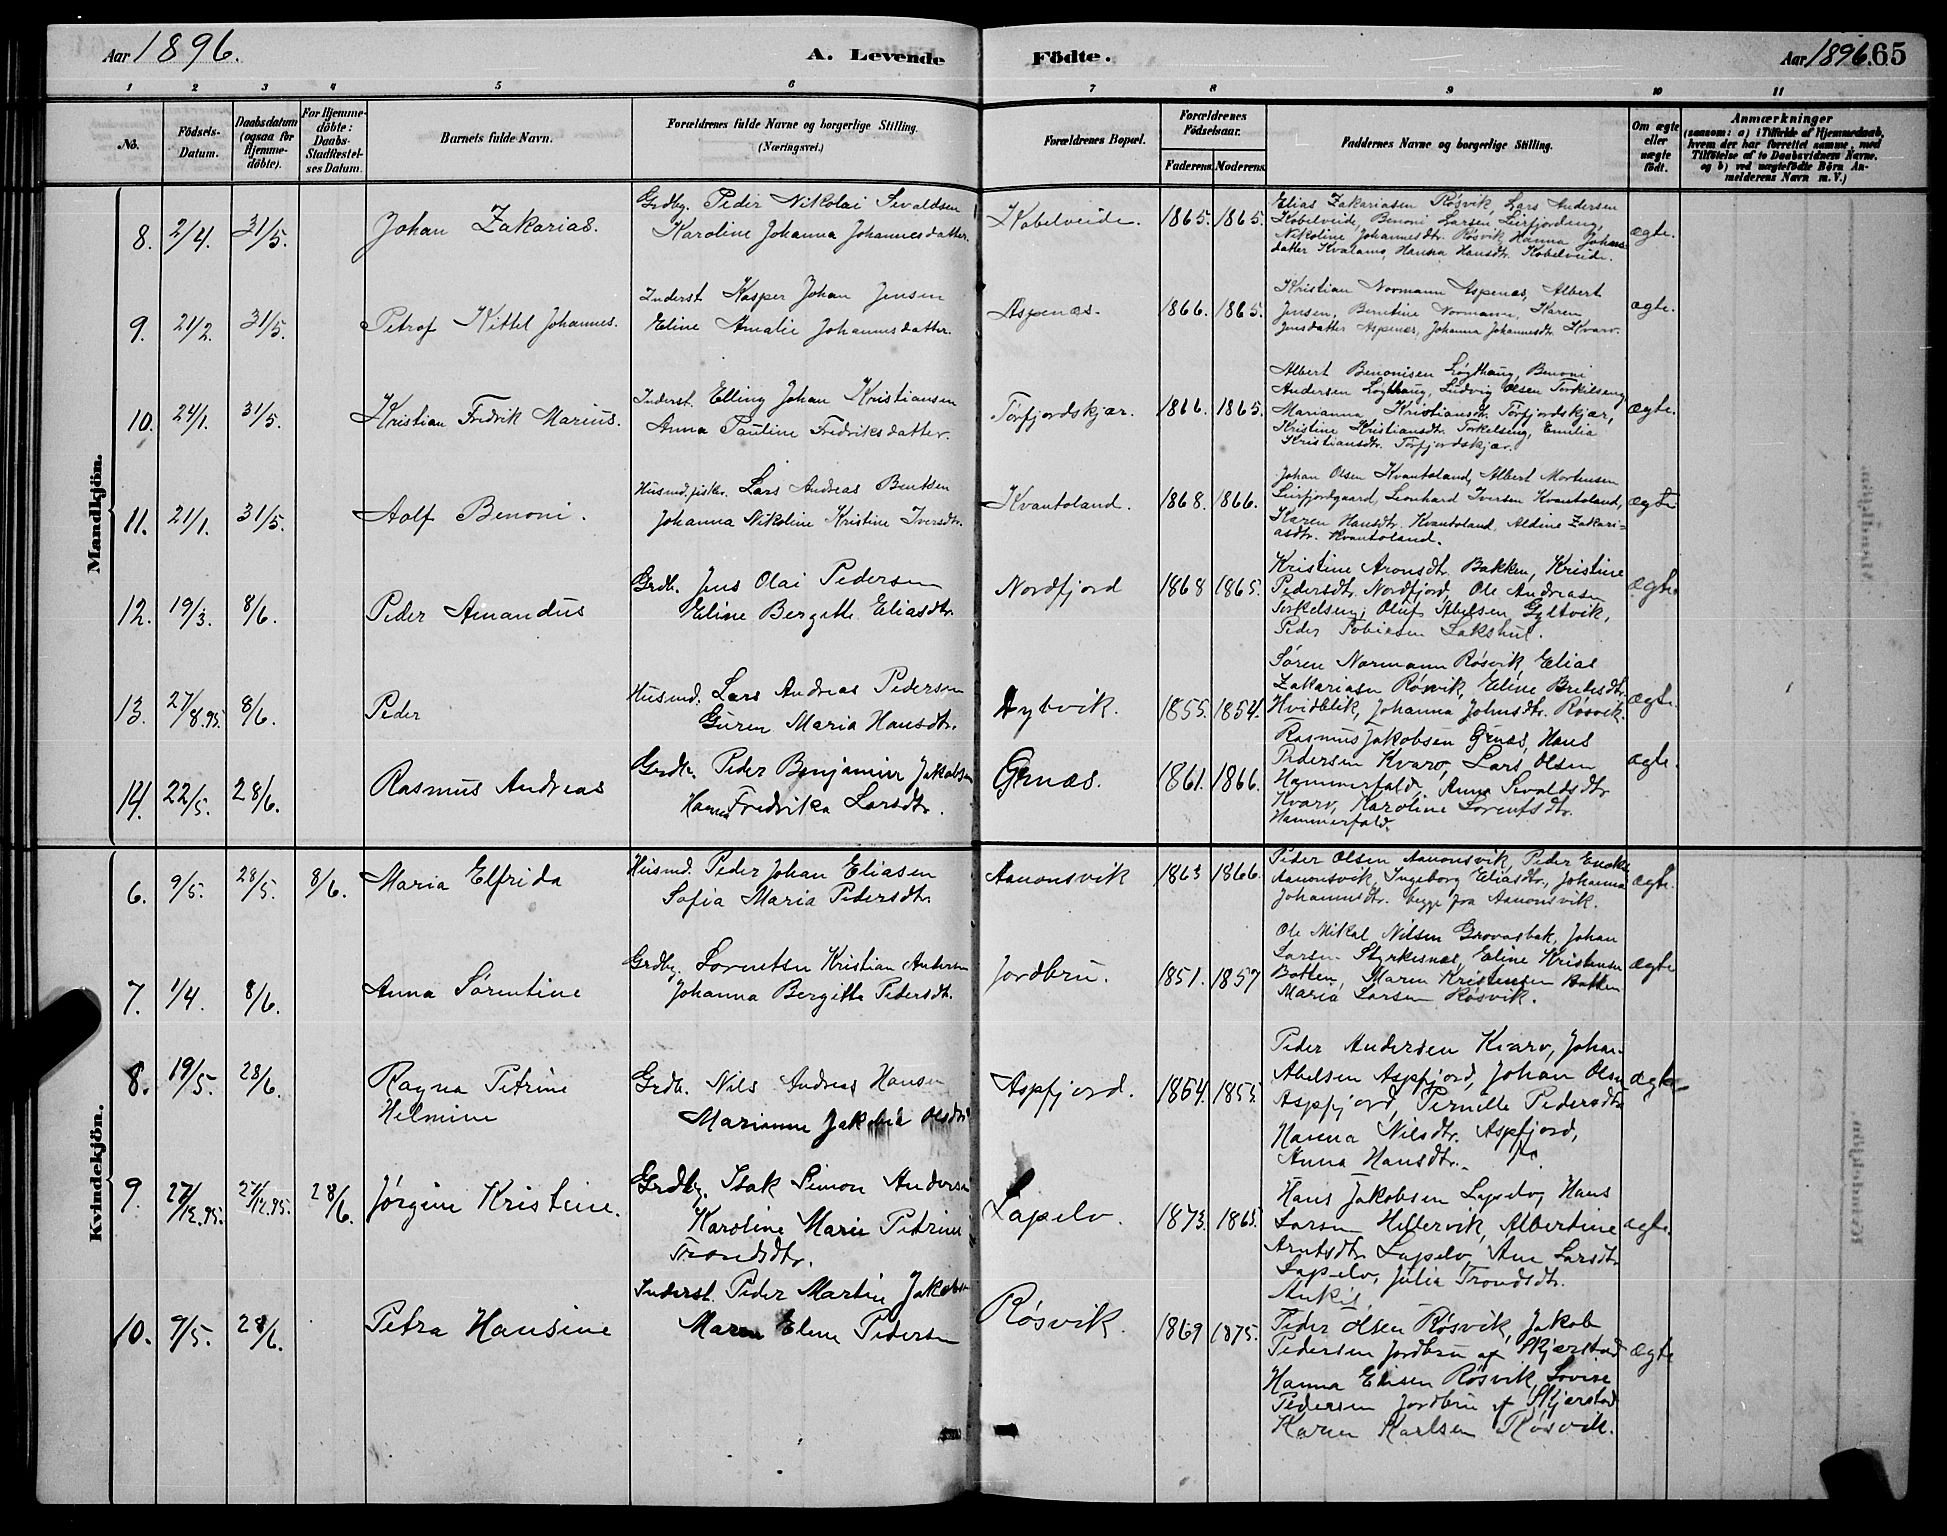 Aar 1896. A. Levende Födte. Aar 1896. 65
1 2 3 4 5 6 7 8 9 10 11
No. Födsels-Datum. Daabsdatum (ogsaa for Hjemme-döbte). For Hjemme-döbte: Daabs-Stadfæstel-ses Datum. Barnets fulde Navn. Forældrenes fulde Navne og borgerlige Stilling. (Næringsvei.) Forældrenes Bopæl. Forældrenes Födselsaar. Faderens. Moderens. Faddernes Navne og borgerlige Stilling. Om ægte eller uægte födt. Anmærkninger (saasom: a) i Tilfælde af Hjemmedaab, hvem der har forrettet samme, med Tilföielse af to Daabsvidners Navne, og b) ved uægtefödte Börn An-melderens Navn m. V.)
Mandkjön.
8. 2/4. 31/5. Johan Zakarias.
Grdbg. Peder Nikolai Sivaldsen
Karoline Johanna Johannesdatter.
Kobelveide. 1865. 1865.
Elias Zakariasen Røsvik, Lars Andersen
Kobelveide, Benoni Larsen, Leirfjordeng,
Nikoline Johannesdtr. Røsvik, Hanna Johans-
datter Kvalams, Hanna Hansdtr. Kobelveide.
ægte.
9. 21/2. 31/5. Petrof Kittel Johannes.
Inderst Kasper Johan Jensen
Eline Amalie Johannesdatter.
Aspenæs. 1866. 1865.
Kristian Normann Aspenæs, Albert
Jensen, Berntine Normann, Karen
Jensdatter Aspenæs, Johanna Johannesdtr. Kvarv.
ægte.
10. 24/1. 31/5. Kristian Fredrik Marius.
Inderst. Elling Johan Kristiansen
Anna Pauline Fredriksdatter.
Tørfjordskjær. 1866. 1865.
Albert Benonisen Løgthaug, Benoni
Andersen Løgthaug, Ludvig Olsen Torkelseng,
Marianna Kristiansdtr. Tørfjordskjær,
Kristine Kristiansdtr. Torkelseng, Emilia
Kristiansdtr. Tørfjordskjær.
ægte.
11. 21/1. 31/5. Adolf Benoni.
Husmd. fisker. Lars Andreas Bentsen
Johanna Nikoline Kristine Iversdtr.
Kvantoland. 1868. 1866.
Johan Olsen Kvantoland, Albert Mortensen
Leirfjordgaard, Leonhard Iversen Kvantoland,
Karen Hansdtr. Kvantoland, Aldine Zakari-
asdtr. Kvantoland.
ægte
12. 19/3. 8/6. Peder Amandus
Grdb. Jens Olai Pedersen
Eline Bergitte Eliasdtr.
Nordfjord 1868 1865.
Kristine Aronsdtr. Bakken, Kristine
Pedersdtr. Nordfjord, Ole Andreasen
Torkelseng, Oluf Abelsen Gyltvik,
Peder Tobiesen Lakshul.
ægte
13. 27/8.95. 8/6. Peder
Husmd. Lars Andreas Pedersen
Guren Maria Hansdtr.
Dybvik. 1855. 1854.
Søren Normann Røsvik, Elias
Zakariasen Røsvik, Eline Bredesdtr.
Hvidblik, Johanna Johnsdtr. Røsvik.
ægte.
14. 22/5. 28/6. Rasmus Andreas
Grdb. Peder Benjamin Jakobsen
Hanna Fredrika Larsdtr.
Grnæs. 1861. 1866.
Rasmus Jakobsen Grnæs, Hans
Pedersen Kvarv, Lars Olsen
Hammerfald, Anna Sivaldsdtr
Kvarv, Karoline Lorentsdtr.
Hammerfald.
ægte.
Kvindekjön.
6. 9/5. 28/5. 8/6. Maria Elfrida
Husmd. Peder Johan Eliasen
Sofia Maria Pedersdtr.
Aanonsvik 1863 1866.
Peder Olsen Aanonsvik, Peder
Aanonsvik, Ingeborg Eliasdtr., Johanna
Johannesdtr. begge fra Aanonsvik.
ægte.
7. 1/4. 8/6. Anna Sørentine
Grdbg. Lorentsen Kristian Andersen
Johanna Bergitte Pedersdtr.
Jordbru. 1851. 1857
Ole Mikal Nilsen Grovasbak, Johan
Larsen Styrkesnæs, Eline Kristensen
Botten, Maren Kristensen Botten
Maria Larsen Røsvik.
ægte
8. 19/5. 28/6. Ragna Petrine
Helmine
Grdb. Nils Andreas Hansen
Marianne Jakobia Olsdtr
Aspfjord. 1854. 1855.
Peder Andersen Kvarv, Johan
Abelsen Aspfjord, Johan Olsen
Aspfjord, Pernelle Pedersdtr
Hanna Nilsdtr. Aspfjord,
Anna Hansdtr.
ægte
9. 27/12.95. 27/12.95. 28/6. Jørgine Kristine.
Grdbg. Isak Simon Andersen
Karoline Marie Petrine
Trondsdtr.
Lapelv. 1873. 1865.
Hans Jakobsen Lapelv, Hans
Larsen Heltervik, Albertine
Arntsdtr Lapelv, Ane Larsdtr
Lapelv, Julia Trondsdtr.
Ankil
ægte.
10. 9/5. 28/6. Petra Hansine
Inderst. Peder Martin Jakobsen
Maren Elene Pedersen
Røsvik. 1869 1875.
Peder Olsen Røsvik, Jakob
Pedersen Jordbru af Skjerstad
Hanna Elisen Røsvik, Lovise
Pedersen Jordbru af Skjerstad
Karen Karlsen Røsvik.
ægte